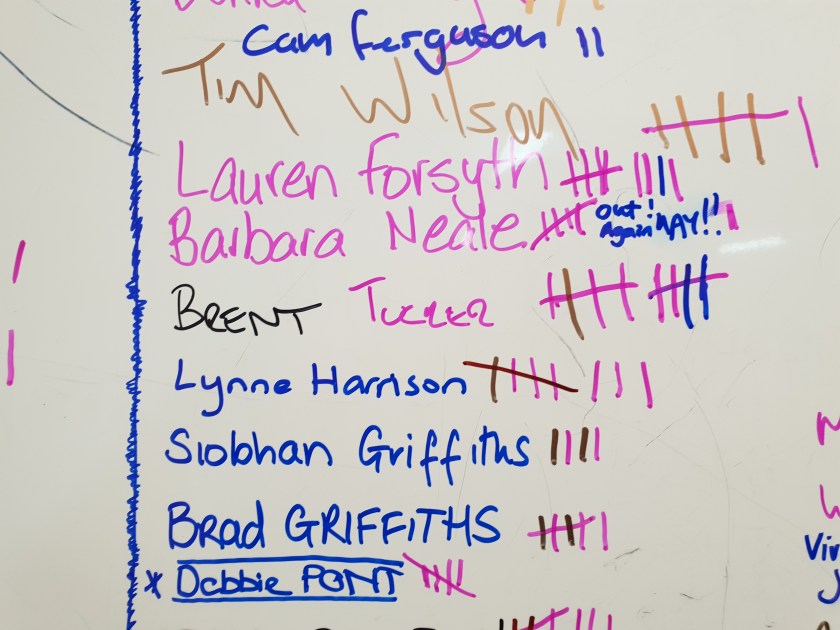 Cam Ferguson
Tim Wilson
Lauren Forsyth
Barbara Neale out! Again YAY!!
BRENT TUCKER
Lynne Harrison
Siobhan Griffiths
Brad GRIFFITHS
* Debbie PONT
Viv